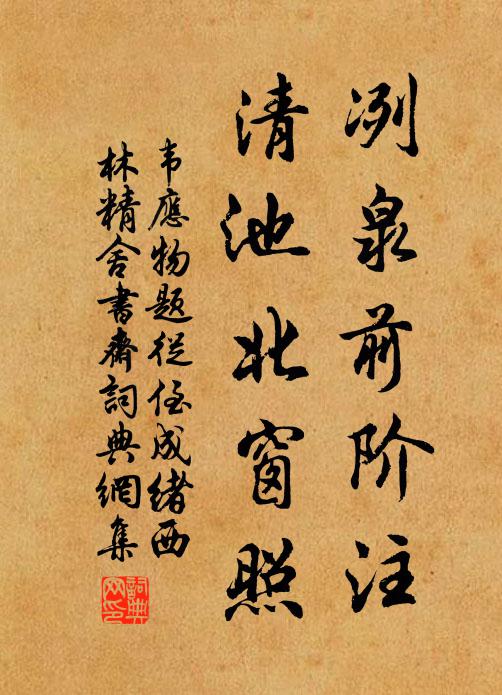 冽泉前阶注
清池北窗照
韦應物题從侄成绪西
林精舍書齋詞典網集
詞典網印